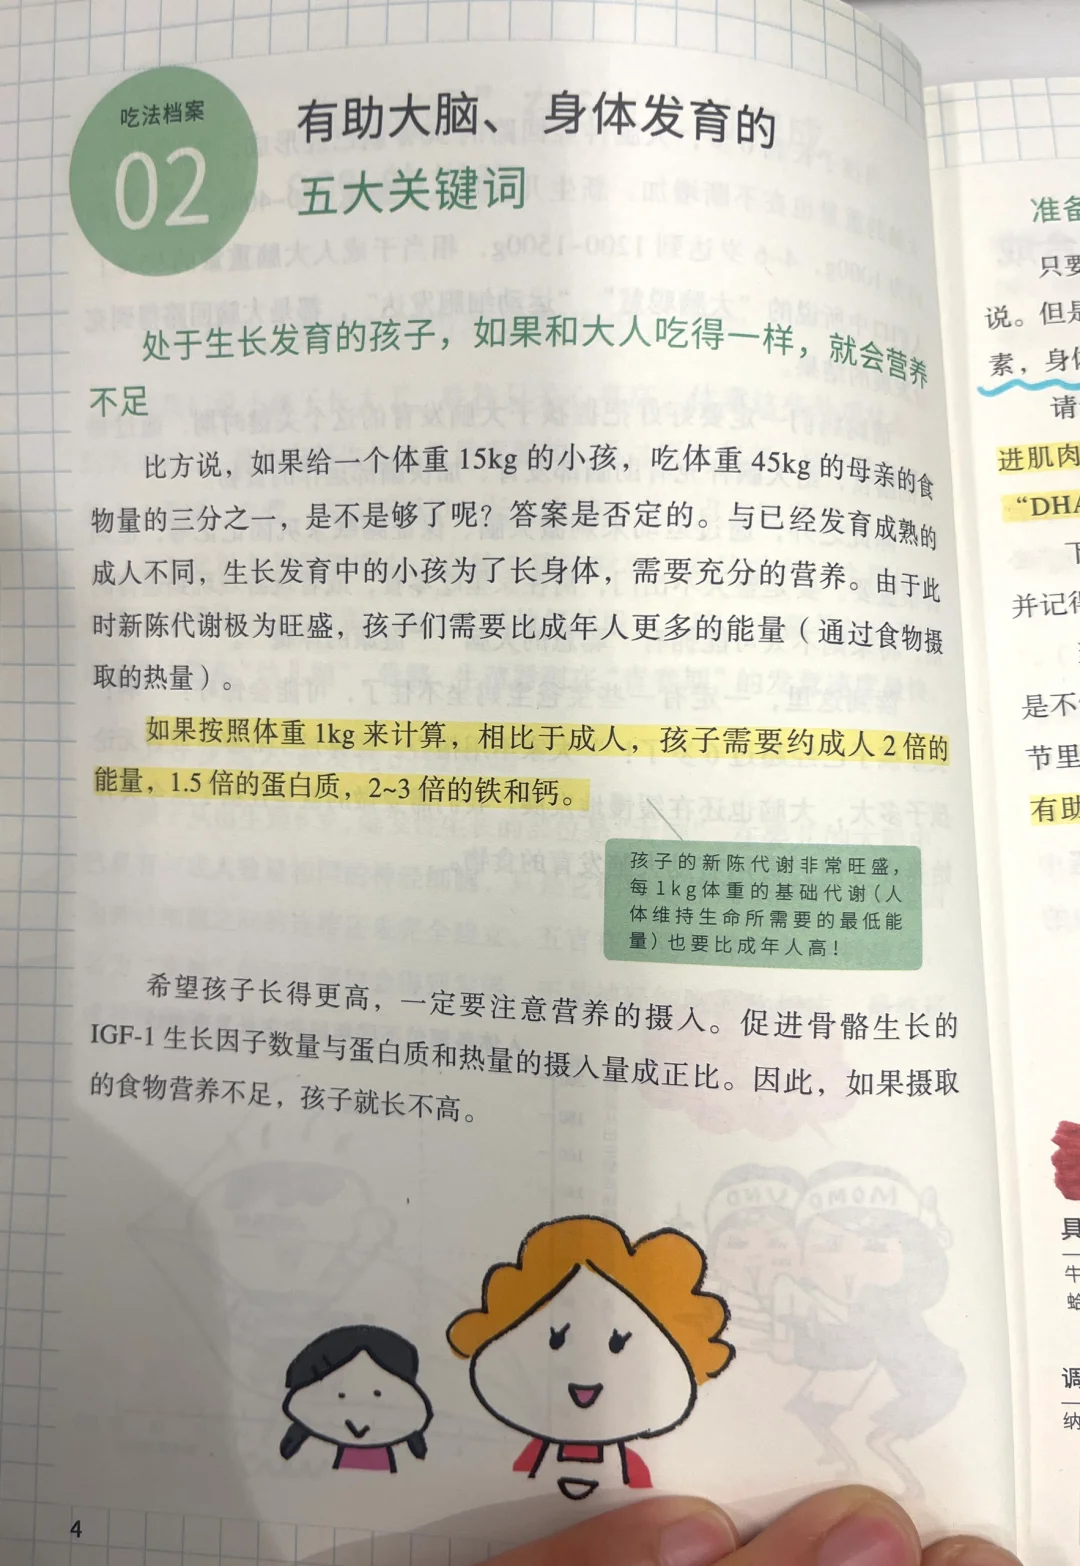 吃法档案
02
有助大脑、身体发育的
五大关键词
处于生长发育的孩子，如果和大人吃得一样，就会营养
不足
比方说，如果给一个体重 15kg 的小孩，吃体重 45kg 的母亲的食
物量的三分之一，是不是够了呢？答案是否定的。与已经发育成熟的
成人不同，生长发育中的小孩为了长身体，需要充分的营养。由于此
时新陈代谢极为旺盛，孩子们需要比成年人更多的能量（通过食物摄
取的热量）。
如果按照体重 1kg 来计算，相比于成人，孩子需要约成人 2 倍的
能量，1.5 倍的蛋白质，2~3 倍的铁和钙。
孩子的新陈代谢非常旺盛，
每1kg体重的基础代谢（人
体维持生命所需要的最低能
量）也要比成年人高！
希望孩子长得更高，一定要注意营养的摄入。促进骨骼生长的
IGF-1 生长因子数量与蛋白质和热量的摄入量成正比。因此，如果摄取
的食物营养不足，孩子就长不高。
4
准备
只要
说。但是
素，身体
请
进肌肉
“DHA
并记得
是不
节里
有助
具
牛
蛤
调
纳